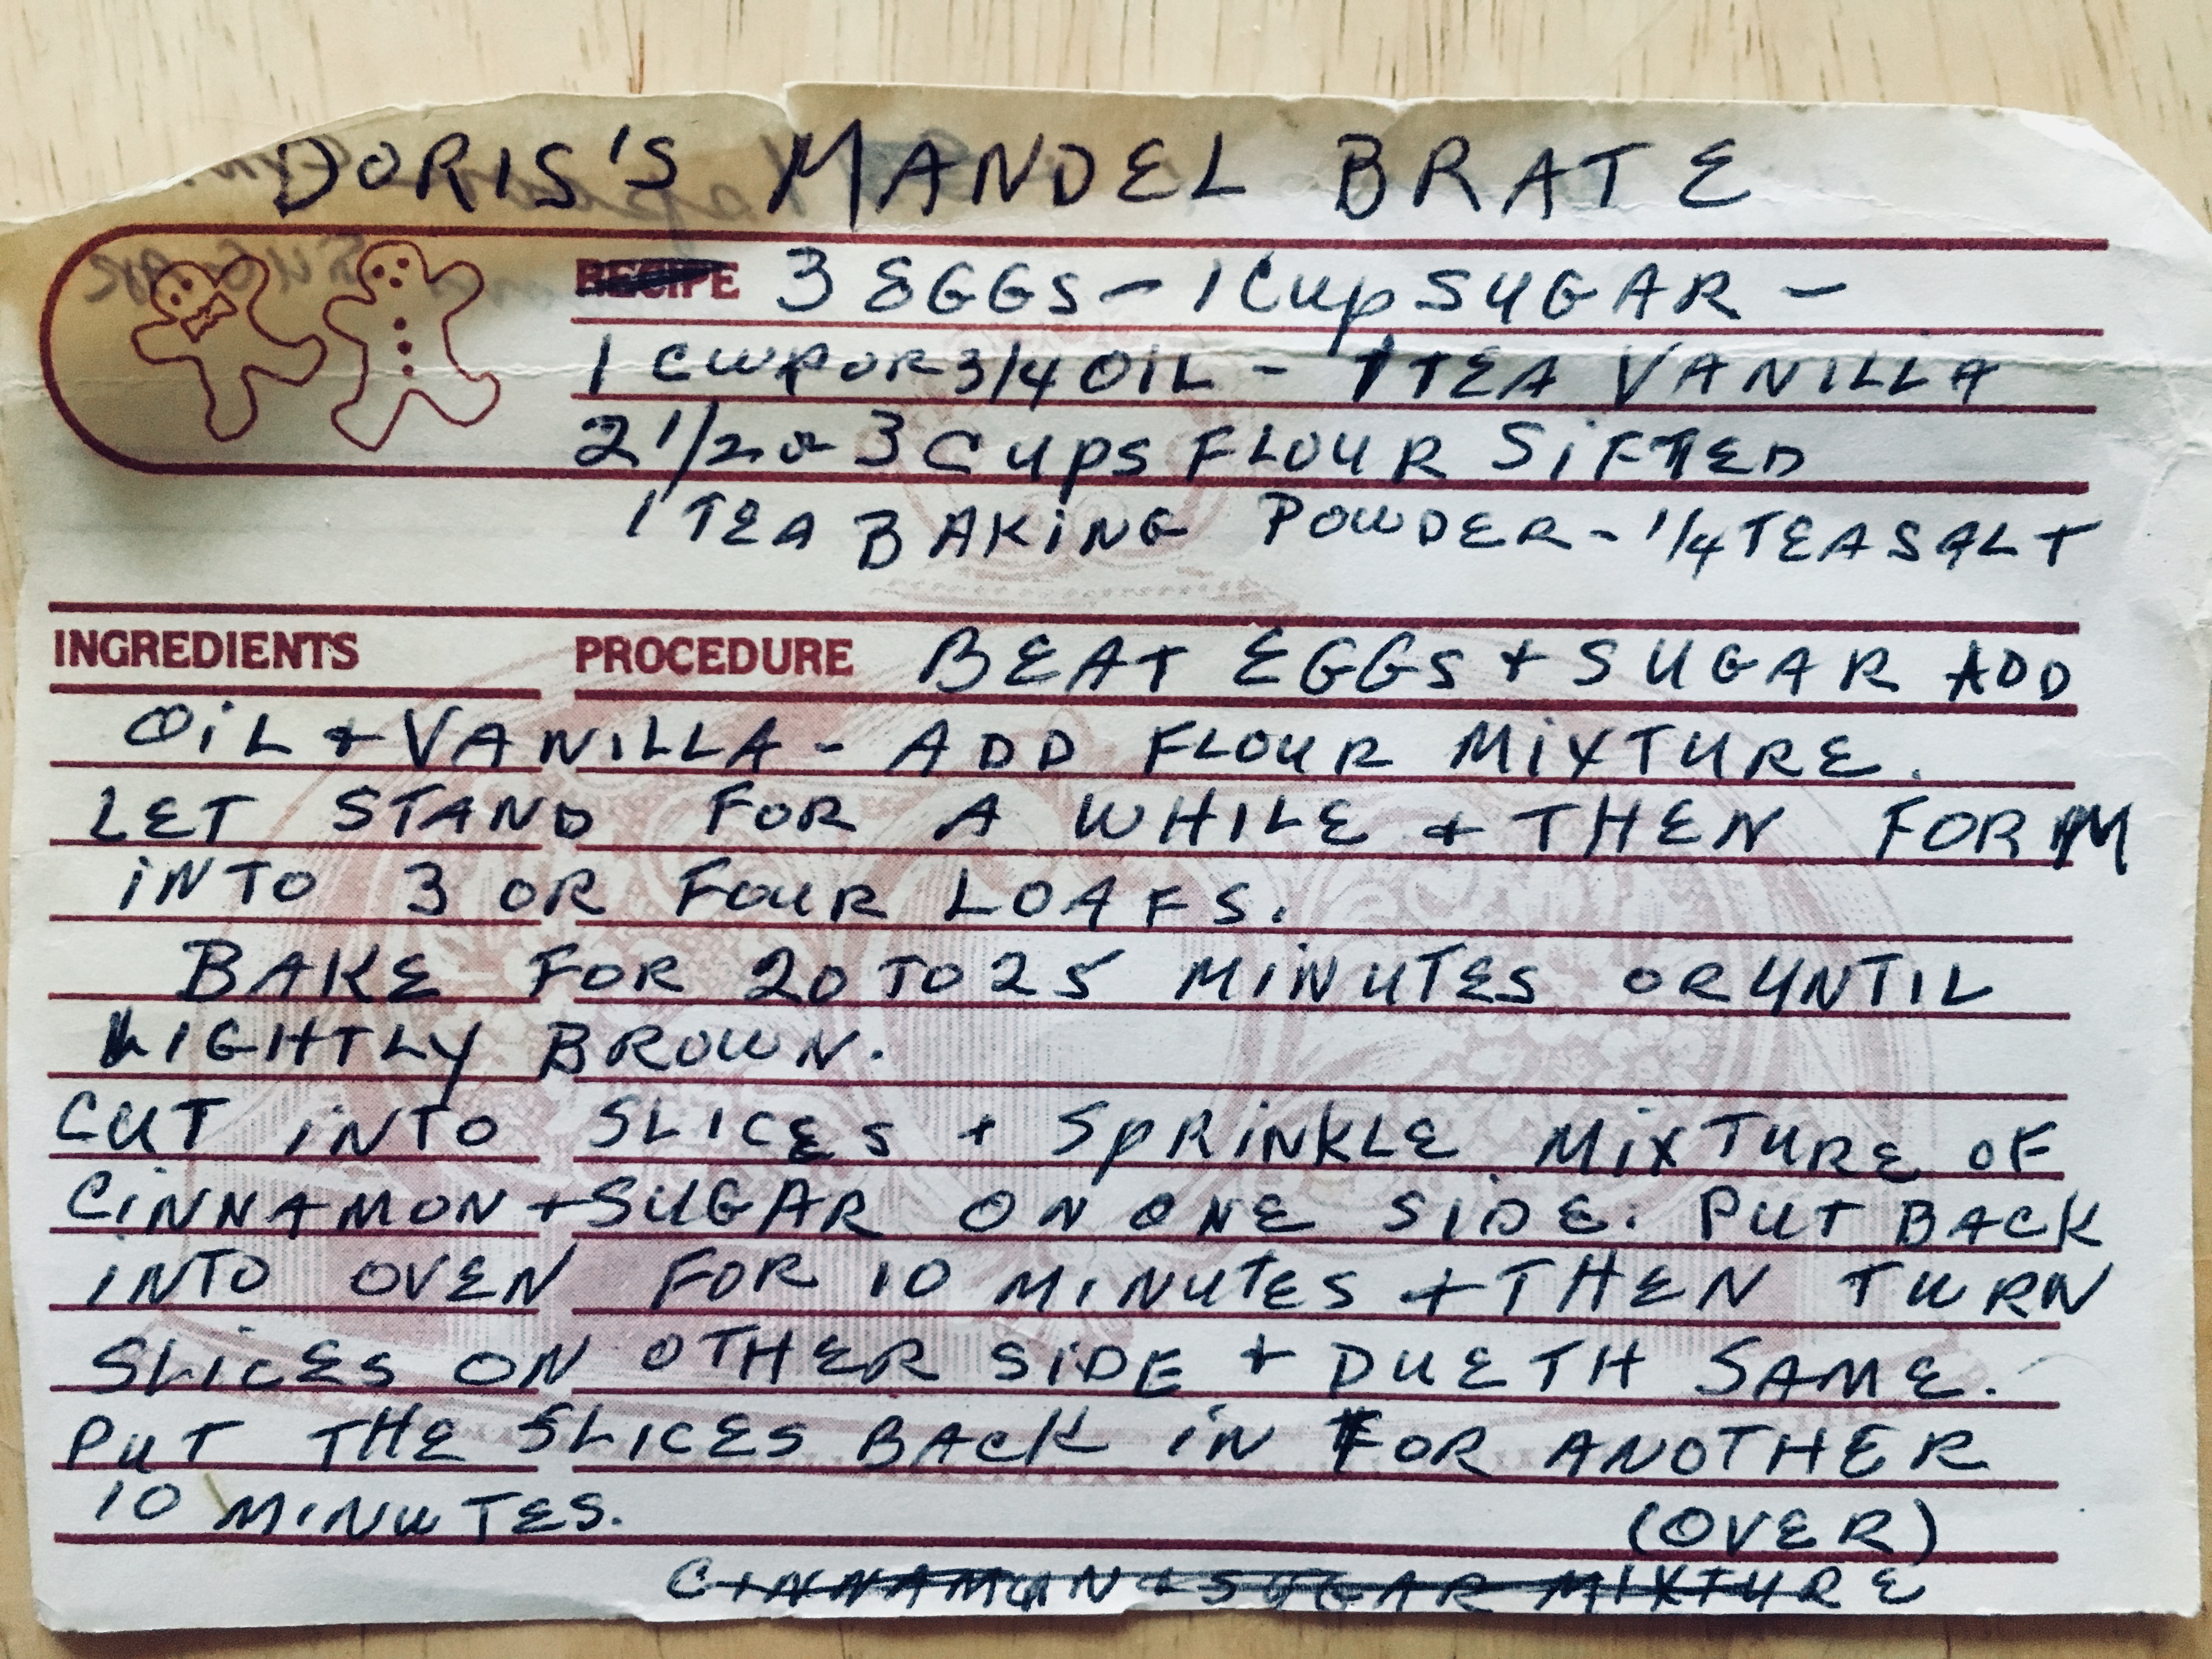 DORIS'S MANDEL BRATE
RECIPE 3 EGGS - 1 Cup SUGAR -
1 CUP OR 3/4 OIL - 1 TEA VANILLA
2 1/2 or 3 CUPS FLOUR SIFTED
1 TEA BAKING POWDER - 1/4 TEA SALT
INGREDIENTS PROCEDURE BEAT EGGS + SUGAR ADD
OIL + VANILLA - ADD FLOUR MIXTURE.
LET STAND FOR A WHILE + THEN FORM
INTO 3 OR FOUR LOAFS.
BAKE FOR 20 TO 25 MINUTES OR UNTIL
LIGHTLY BROWN.
CUT INTO SLICES + SPRINKLE MIXTURE OF
CINNAMON + SUGAR ON ONE SIDE. PUT BACK
INTO OVEN FOR 10 MINUTES + THEN TURN
SLICES ON OTHER SIDE + DUETH SAME.
PUT THE SLICES BACK IN FOR ANOTHER
10 MINUTES.
(OVER)
CINNAMON + SUGAR MIXTURE